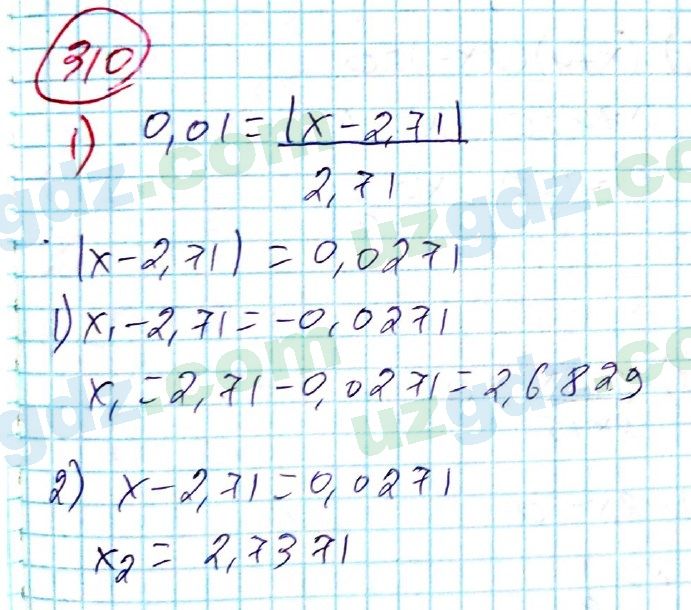 310
1) 0,01 = |x - 2,71| / 2,71
|x - 2,71| = 0,0271
1) x₁ - 2,71 = -0,0271
x₁ = 2,71 - 0,0271 = 2,6829
2) x - 2,71 = 0,0271
x₂ = 2,7371
uzgdz.com